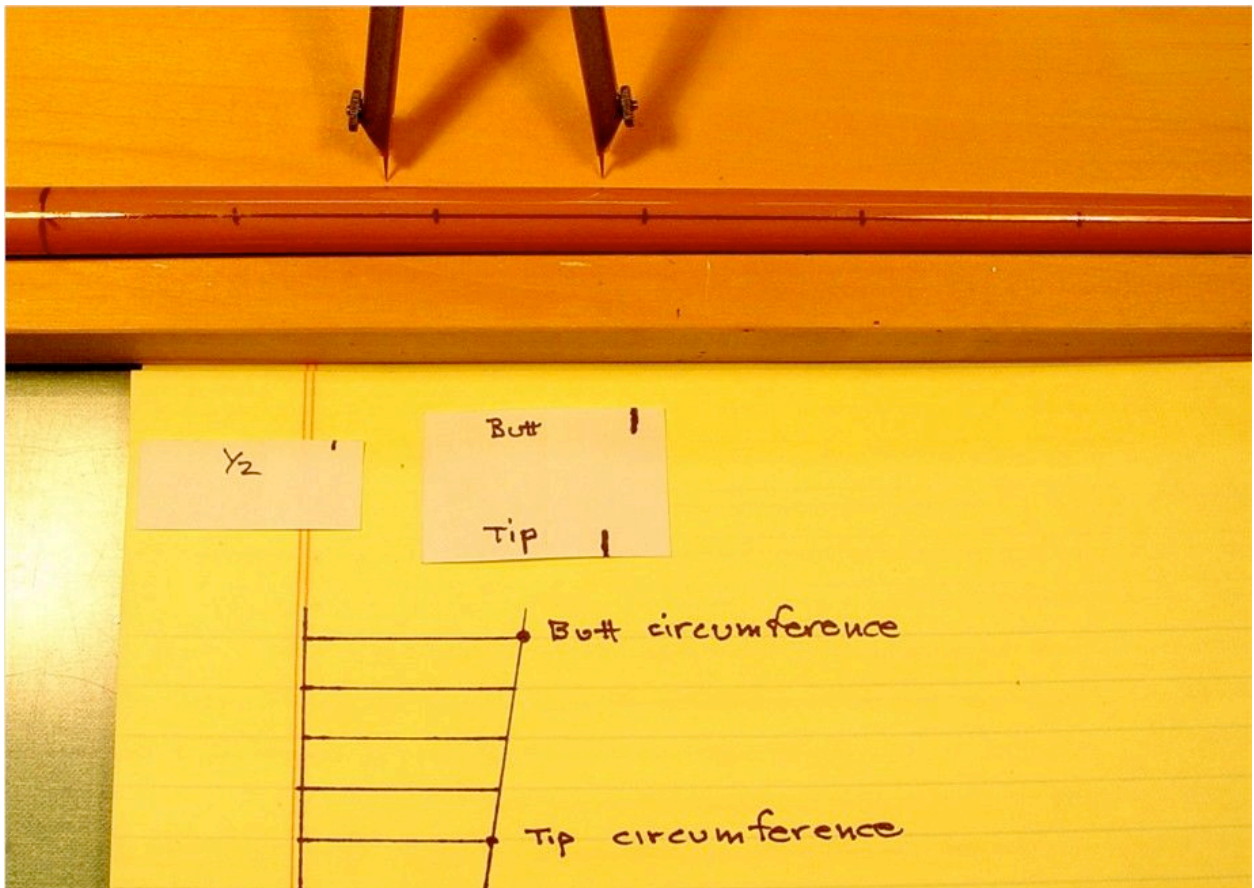 Butt
1/2
Tip
Butt circumference
Tip circumference